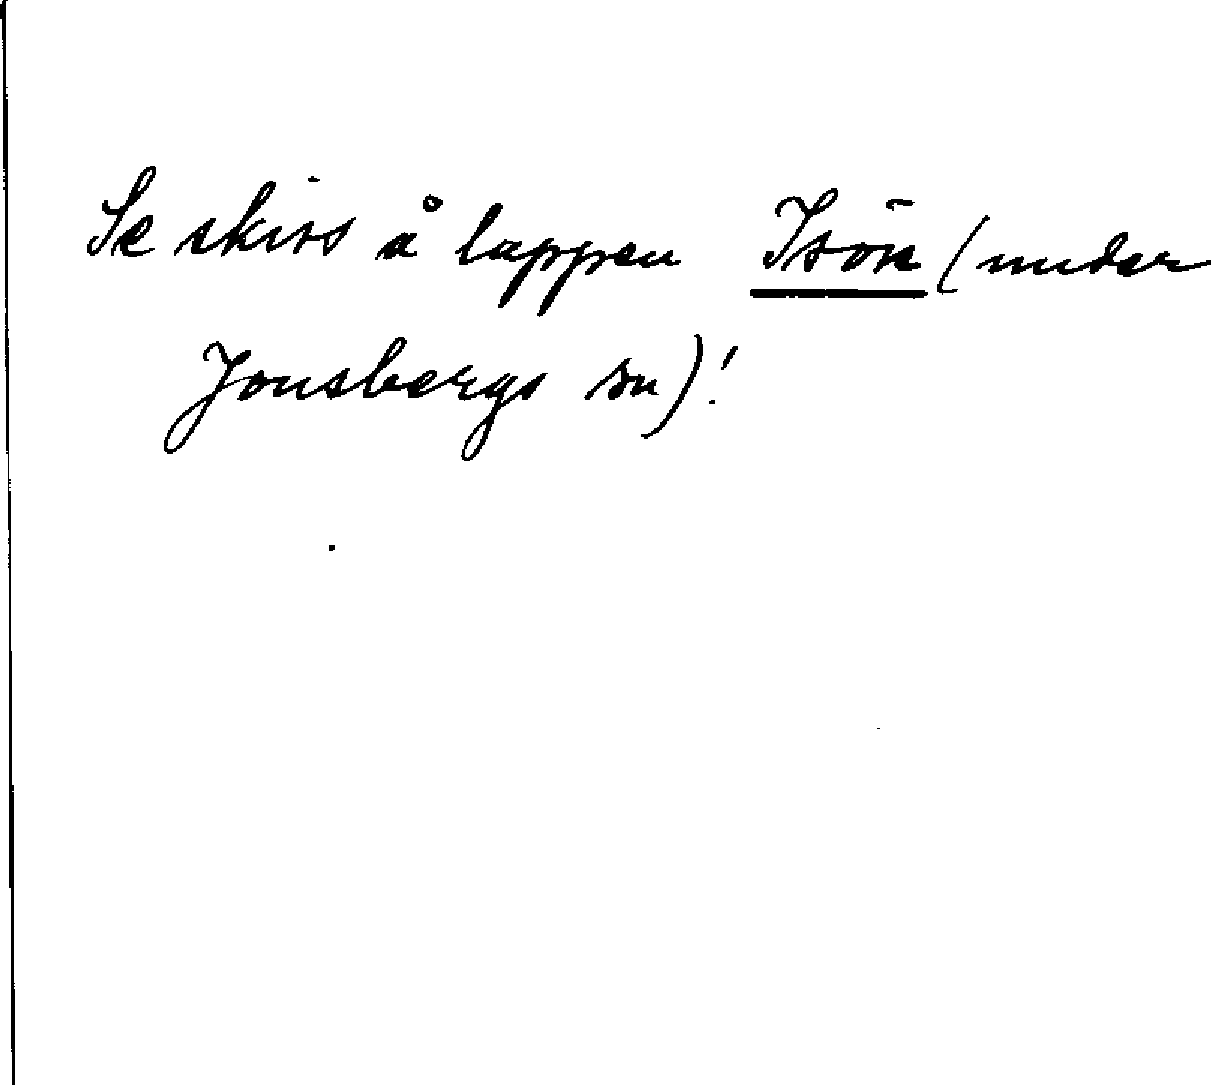 Se skiss å lappen Isön (under
Jonsbergs sn)!